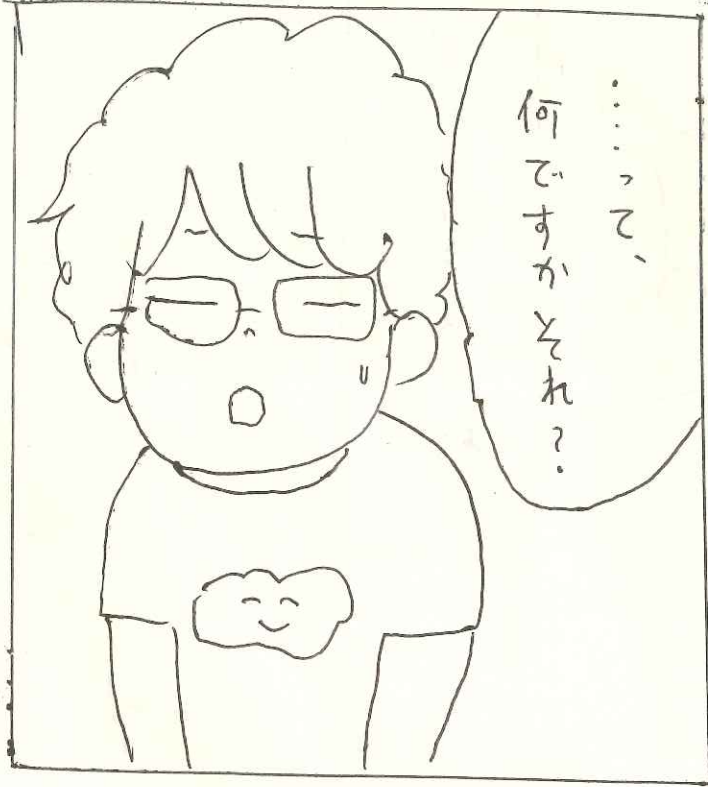 ……って、
何ですかそれ?